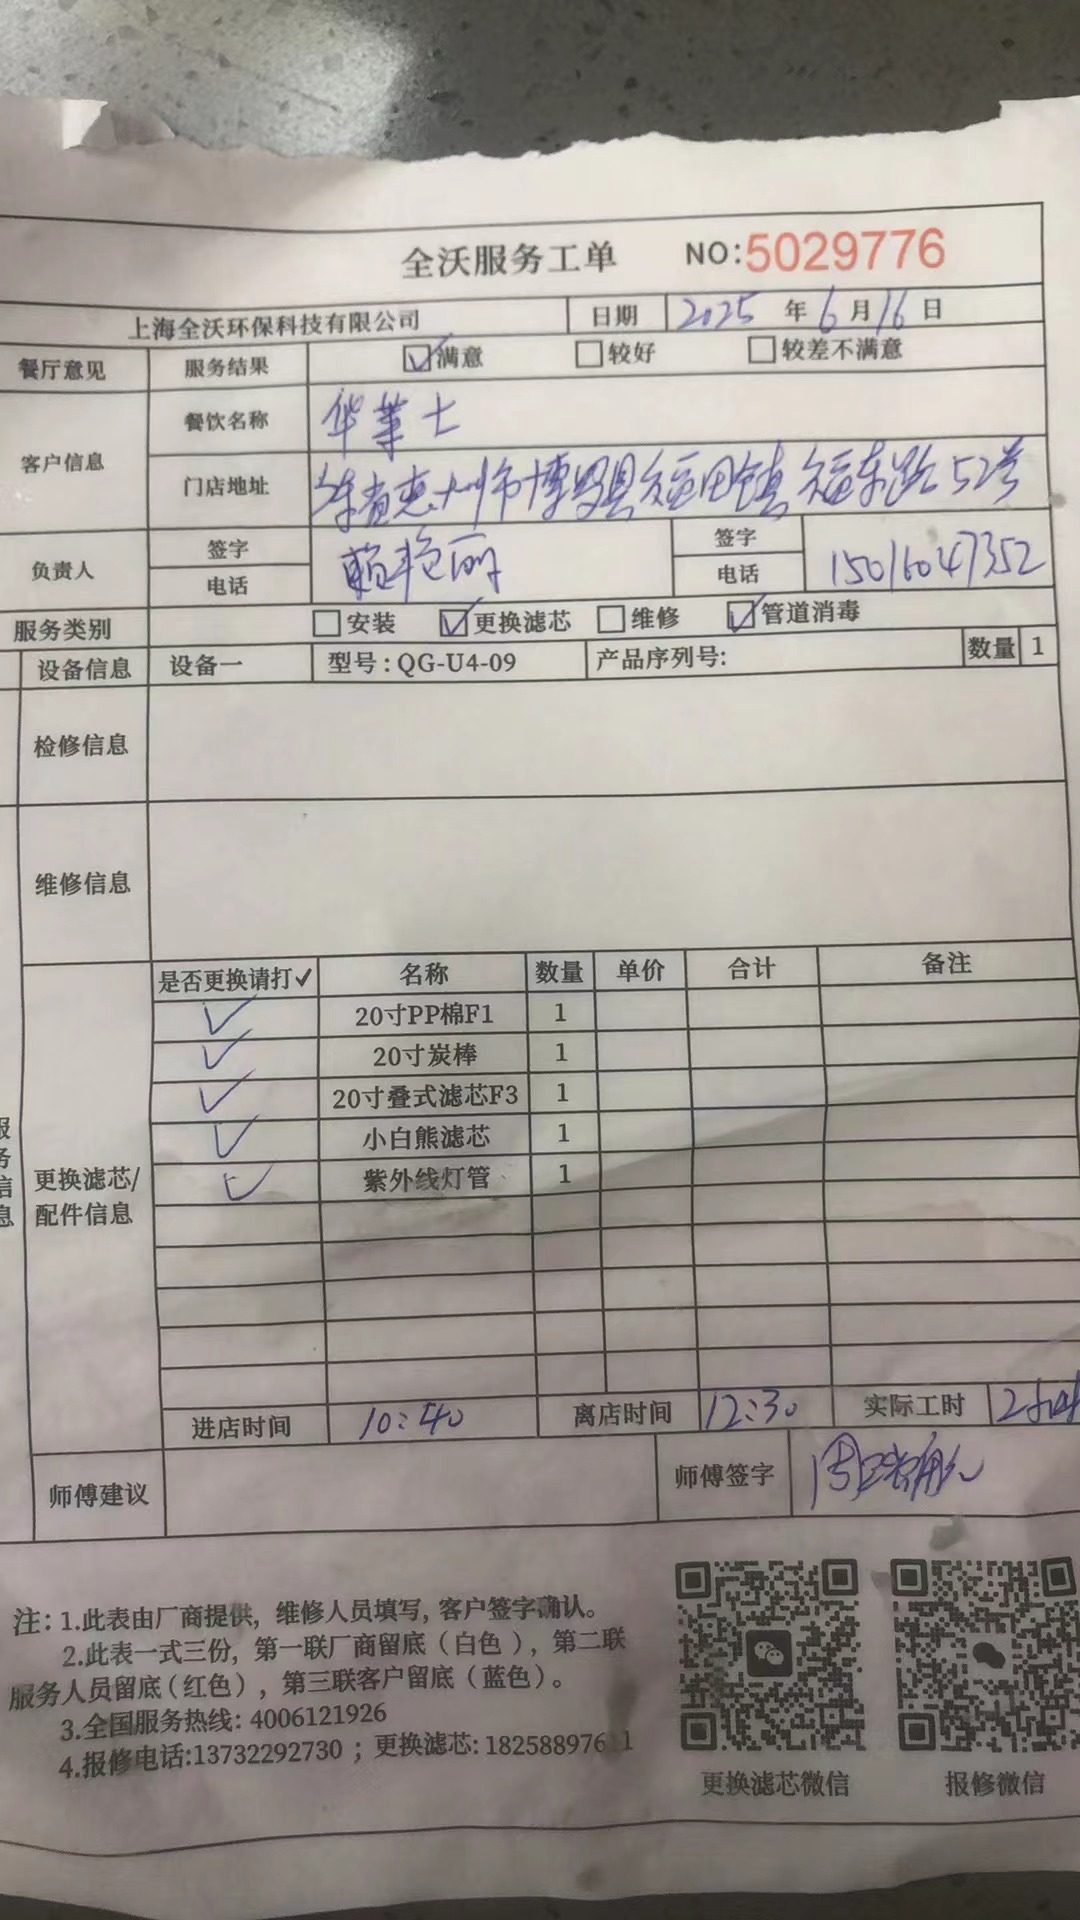 全沃服务工单 NO:5029776
上海全沃环保科技有限公司 日期 2025 年 6 月 16 日
餐厅意见 服务结果 满意 较好 较差不满意
客户信息 餐饮名称 华莱士
门店地址 东省惠州市博罗县福田镇福东路52号
负责人 签字 赖艳丽 签字
电话 电话 15016047352
服务类别 安装 更换滤芯 维修 管道消毒
设备信息 设备一 型号:QG-U4-09 产品序列号: 数量 1
检修信息
维修信息
服务信息
更换滤芯/配件信息
是否更换请打✓ 名称 数量 单价 合计 备注
✓ 20寸PP棉F1 1
✓ 20寸炭棒 1
✓ 20寸叠式滤芯F3 1
✓ 小白熊滤芯 1
✓ 紫外线灯管 1
进店时间 10:40 离店时间 12:30 实际工时 2小时
师傅建议 师傅签字
注: 1.此表由厂商提供, 维修人员填写, 客户签字确认。
2.此表一式三份, 第一联厂商留底(白色), 第二联
服务人员留底(红色), 第三联客户留底(蓝色)。
3.全国服务热线: 4006121926
4.报修电话:13732292730 ; 更换滤芯: 18258897611
更换滤芯微信 报修微信